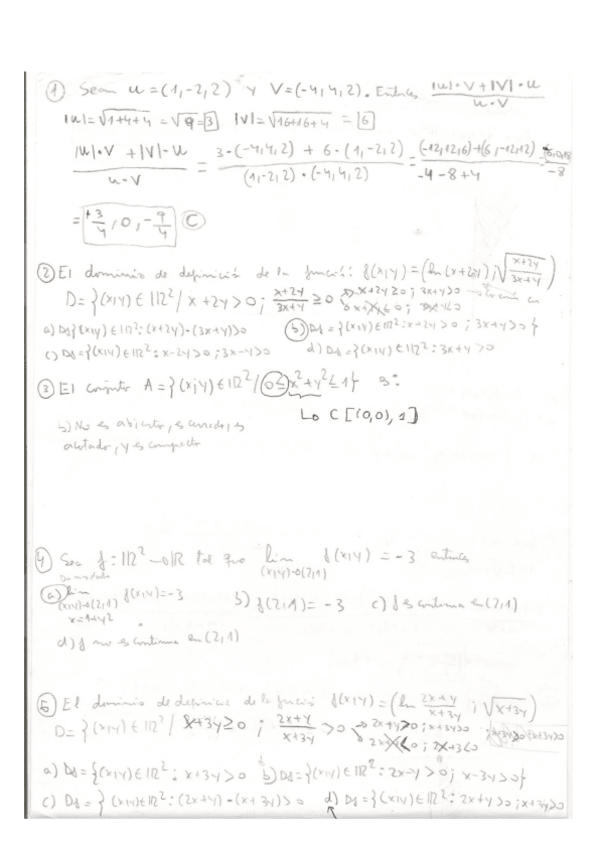 ① Sean u = (1,-2,2) y V = (-4,4,2). Entonces |u|·V+|V|·u / u·V
|u| = √1+4+4 = √9 = 3 |V| = √16+16+4 = 6
|u|·V + |V|·u / u·V = 3·(-4,4,2) + 6·(1,-2,2) / (1,-2,2)·(-4,4,2) = (-12,12,6)+(6,-12,12) / -4-8+4 = / -8
= +3/4, 0, -9/4 C
② El dominio de definición de la función: f(x,y) = (ln(x+2y); √x+2y/3x+y)
D = {(x,y) ∈ IR² / x+2y>0; x+2y/3x+y ≥ 0 x+2y≥0; 3x+y>0
a) Df{(x,y) ∈ IR²: (x+2y)·(3x+y)>0 b) Df = {(x,y) ∈ IR²: x+2y>0; 3x+y>0}
c) Df = {(x,y) ∈ IR²: x-2y>0; 3x-y>0 d) Df = {(x,y) ∈ IR²: 3x+y>0
③ El conjunto A = {(x,y) ∈ IR² / 0≤x²+y²≤1} es:
Lo C[(0,0),1]
b) No es abierto, es cerrado, es
acotado, y es compacto
4 Sea f: IR²→IR tal que lim f(x,y) = -3 entonces
(x,y)→(2,1)
a) lim f(x,y) = -3 b) f(2,1) = -3 c) f es continua en (2,1)
(x,y)→(2,1)
x=1+y²
d) f no es continua en (2,1)
5 El dominio de definición de la función f(x,y) = (ln 2x+y/x+3y; √x+3y)
D = {(x,y) ∈ IR² / x+3y≥0; 2x+y/x+3y >0 2x+y>0; x+3y>0
a) Df = {(x,y) ∈ IR²: x+3y>0 b) Df = {(x,y) ∈ IR²: 2x-y>0; x-3y>0}
c) Df = {(x,y) ∈ IR²: (2x+y)·(x+3y)>0 d) Df = {(x,y) ∈ IR²: 2x+y>0; x+3y>0